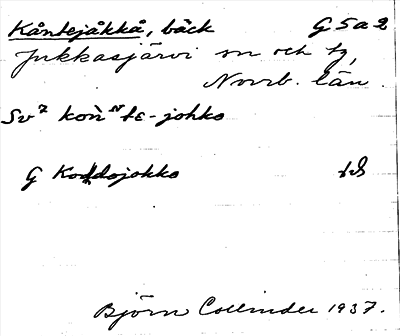 Kåntejåkkå, bäck G5a2
Jukkasjärvi sn och tg,
Norrb. län.
Sv⁷ kon̄ᴺtɛ-johko
G Koddojokko
Björn Collinder 1937.